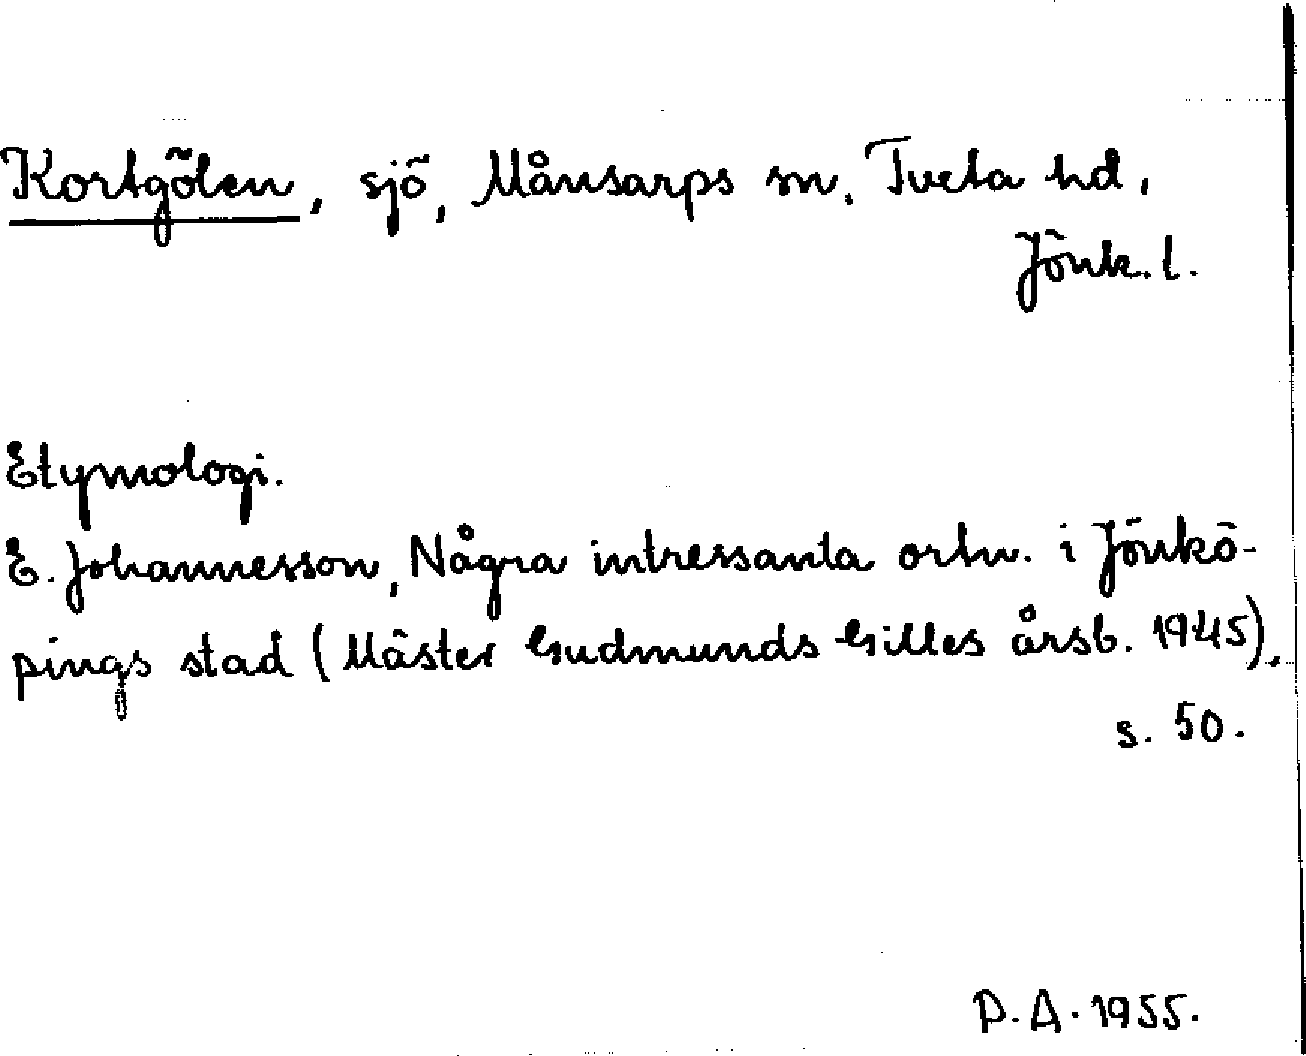 Kortgölen, sjö, Månsarps sn. Tveta hd,
Jönk. l.
Etymologi.
E. Johannesson, Några intressanta ortn. i Jönkö-
pings stad (Mäster Gudmunds Gilles årsb. 1945),
s. 50.
D. A. 1955.